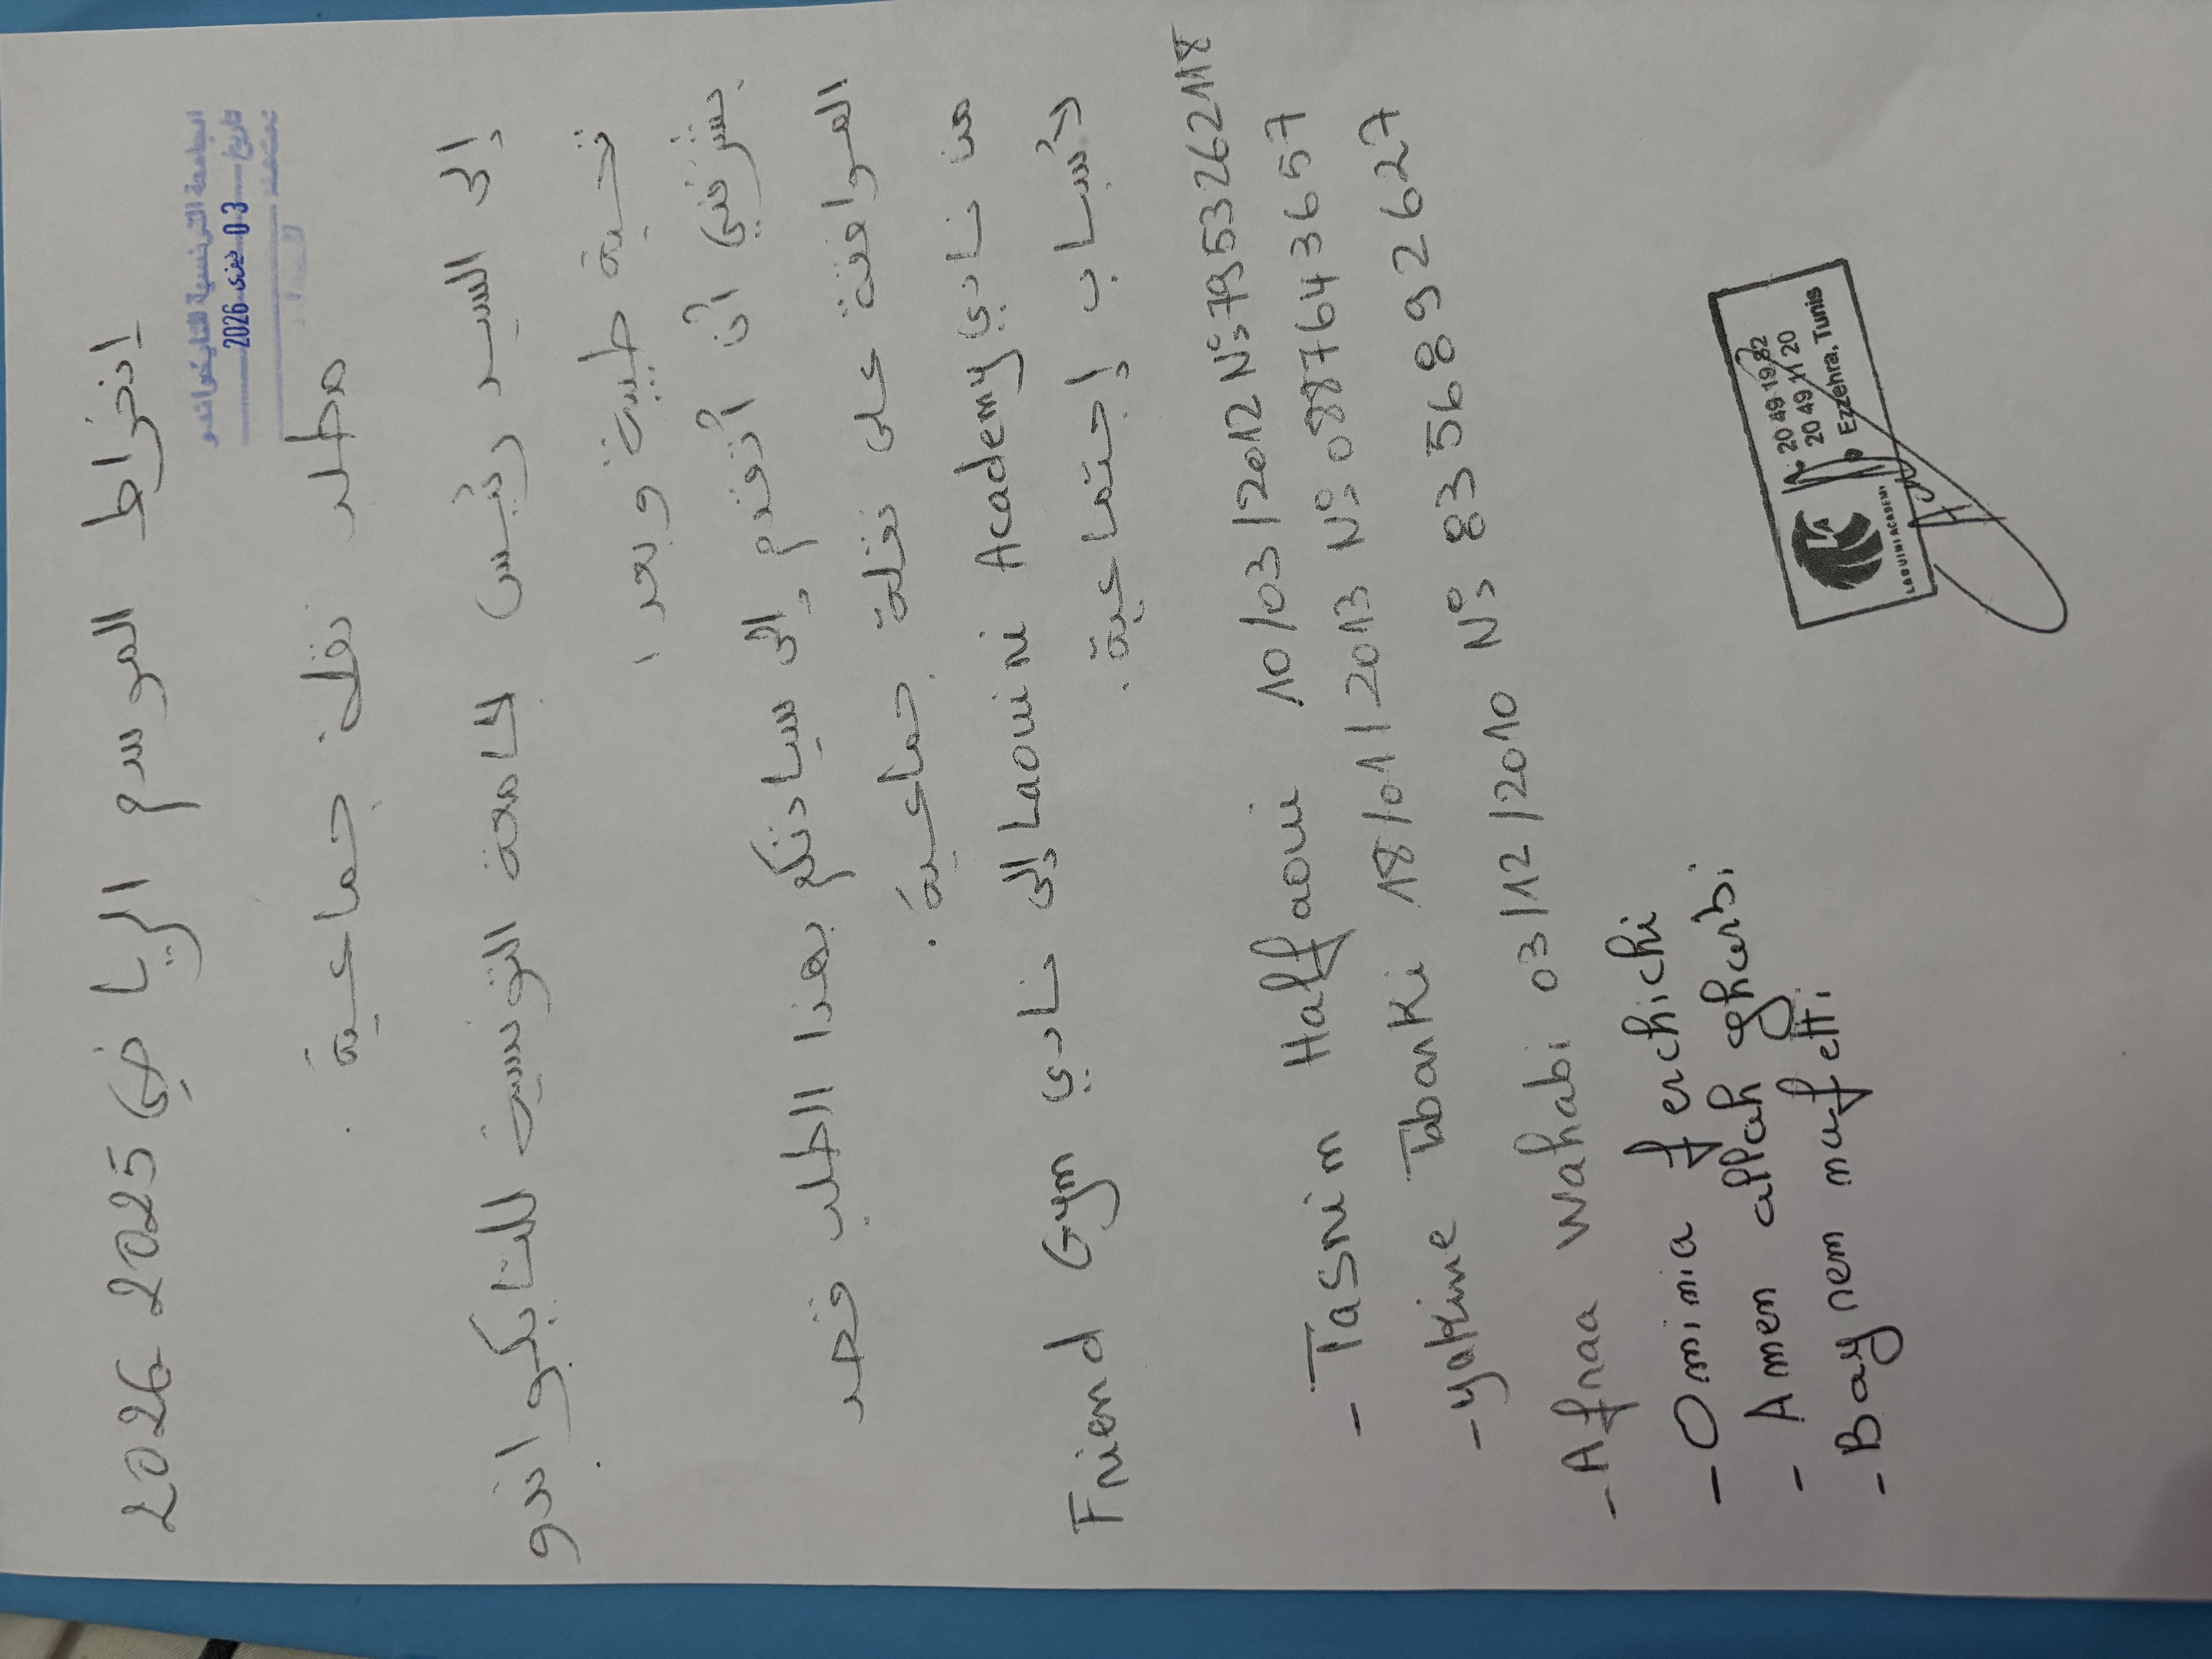 إنخراط الموسم الرياضي 2025 2026
الجامعة التونسية للتايكواندو
تاريخ 03 فيفري 2026
مطلب نقلة جماعية.
إلى السيد رئيس الجامعة التونسية للتايكواندو.
تحية طيبة وبعد،
يشرفني أن أتقدم إلى سيادتكم بهذا الطلب قصد
الموافقة على نقلة جماعية.
من نادي Laouini Academy إلى نادي Friend Gym
لأسباب إجتماعية.
- Tasnim Halfaoui 10/03/2012 N°: 7953262118
- yakine Tabarki 18/01/2013 N°: 0887643657
- Afnaa Wahabi 03/12/2010 N°: 8356892627
- Omimia ferchichi
- Amen allah gharbi
- Baynem marfetti
20 49 19 82
20 49 11 20
Ezzehra, Tunis
LA
LAOUINI ACADEMY